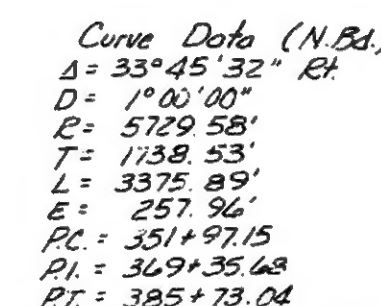 Curve Data (N.Bd.)
Δ = 33°45'32" Rt.
D = 1°00'00"
R = 5729.58'
T = 1738.53'
L = 3375.89'
E = 257.96'
P.C. = 351+97.15
P.I. = 369+35.68
P.T. = 385+73.04